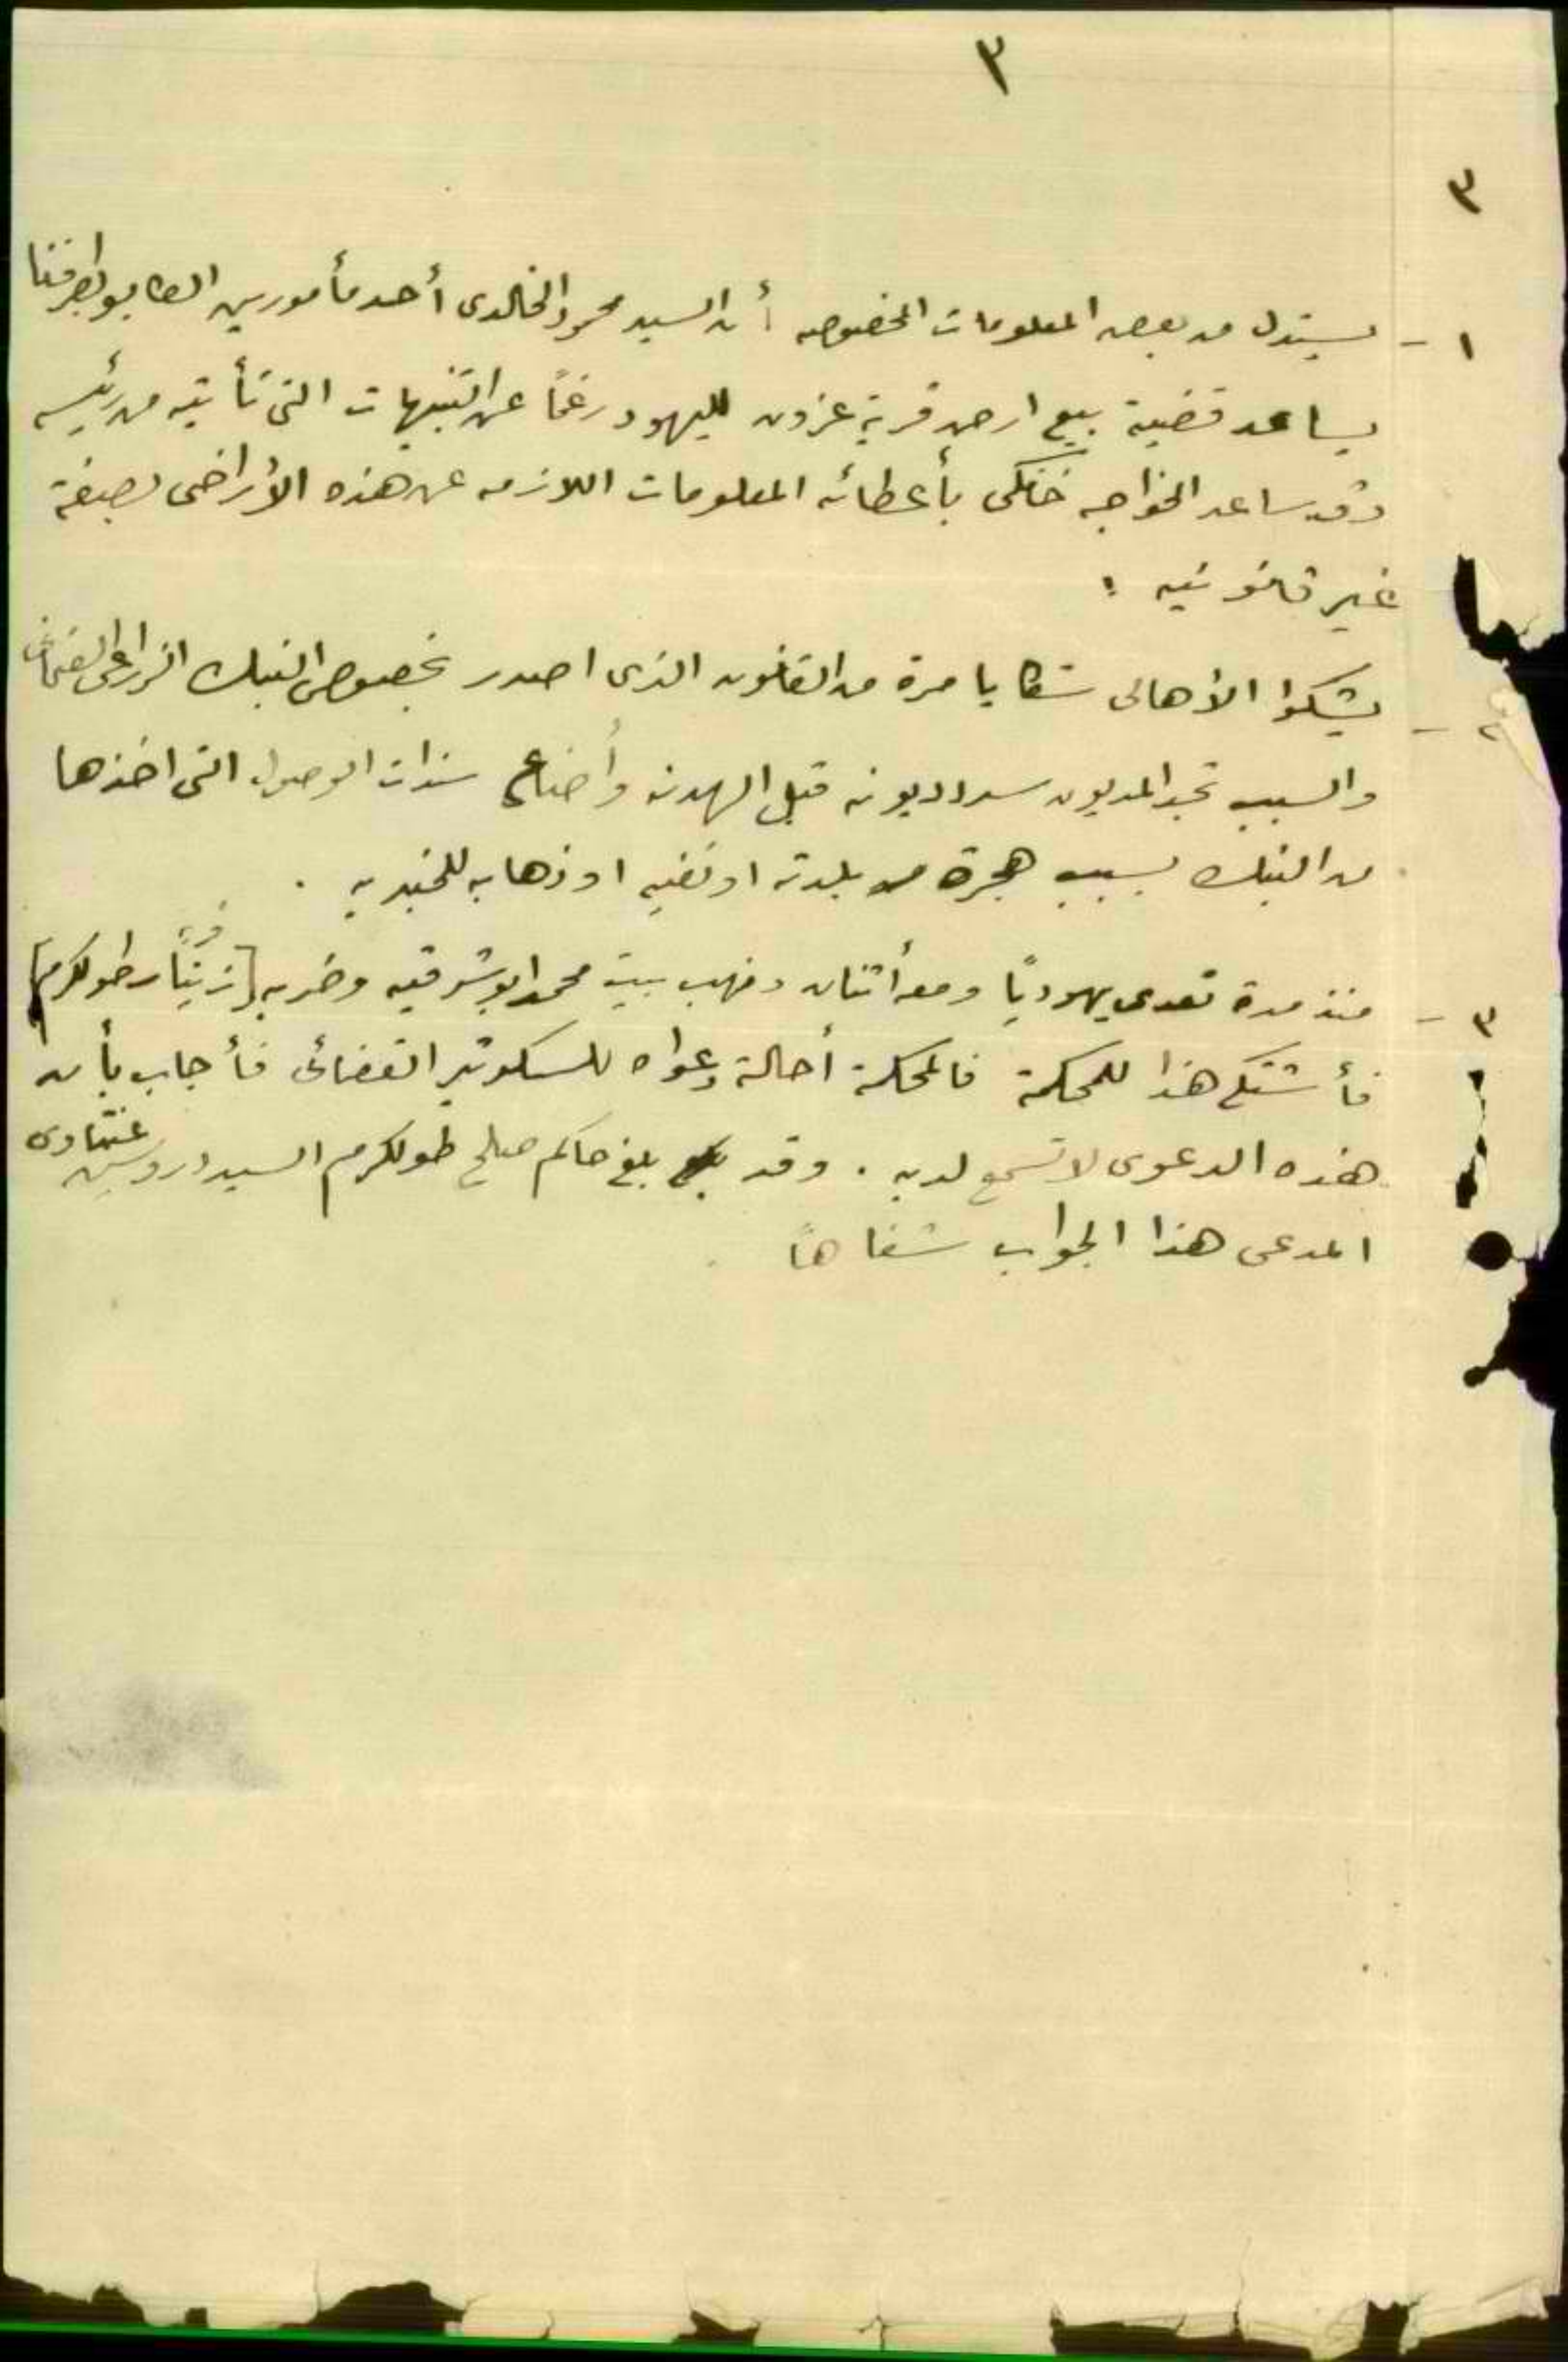 ٣
٣
١ - يستدل من بعض المعلومات الخصوصيه أن السيد محمود الخالدى أحد مأمورين الطابو بطرفنا
يساعد قضية بيع ارض قرية عزون لليهود رغماً عن التنبيهات التى تأتيه من رئيسه
وقد ساعد الخواجه خنكى بأعطائه المعلومات اللازمه عن هذه الأراضى بصيغة
غير قانونيه :
٢ - يشكوا الأهالى شكايا مرة من القانون الذى اصدر بخصوص البنك الزراعى العثمانى
والسبب تجد المديون سدد ديونه قبل الهدنه وأضاع سندات الوصول التى اخذها
من البنك بسبب هجرة من بلدته او نفيه او ذهابه للجنديه .
٣ - منذ مدة تعدى يهودياً ومعه أثنان ونهب بيت محمد ابو شرقيه وضربه [زيتا ر طولكرم]
فأشتكى هذا للمحكمة فالمحكمة أحالة دعواه للسكرتير القضائى فأجاب بأن
هذه الدعوى لا تسمع لديه . وقد بلغ حاكم صلح طولكرم السيد درويش
المدعى هذا الجواب شفاهاً .